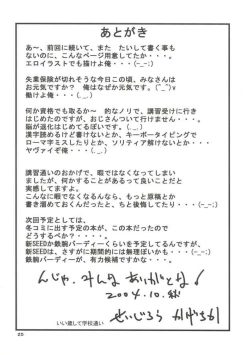 あとがき
あ～、前回に続いて、また　たいして書く事も
ないのに、こんなページ用意してたか・・・。
エロイラストでも描けよ俺・・・(-_-;)
失業保険が切れそうな今日この頃、みなさんは
お元気ですか？　俺はなぜか元気です。(^_^)v
働けよ俺・・・(._.)
何か資格でも取るか～　的なノリで、講習受けに行き
はじめたのですが、おじさんついて行けません・・・。
脳が退化しはじめてるぽいです。(._.)
漢字読めるけど書けないとか、キーボータイピングで
ローマ字ミスしたりとか、ソリティア解けないとか・・・
ヤヴァイぞ俺・・・(._.)
講習通いのおかげで、暇ではなくなってしまい
ましたが、何かすることがあるって良いことだと
実感してますよ。
こんなに暇でなくなるんなら、もっと原稿とか
書き溜めておくんだったと、ちと後悔してたり・・・(-_-;)
次回予定としては、
冬コミに出す予定の本が、この本だったので
どうするべか？・・・。
新SEEDか鉄腕バーディーくらいを予定してるんですが、
新SEEDは、さすがに期間的には無理ぽいかも・・・(-_-;)
鉄腕バーディーが、有力候補ですかな・・・。
んじゃ、みんな ありがとな!
2004.10.秋
いい歳して学校通い
せいじろう かげちか
25